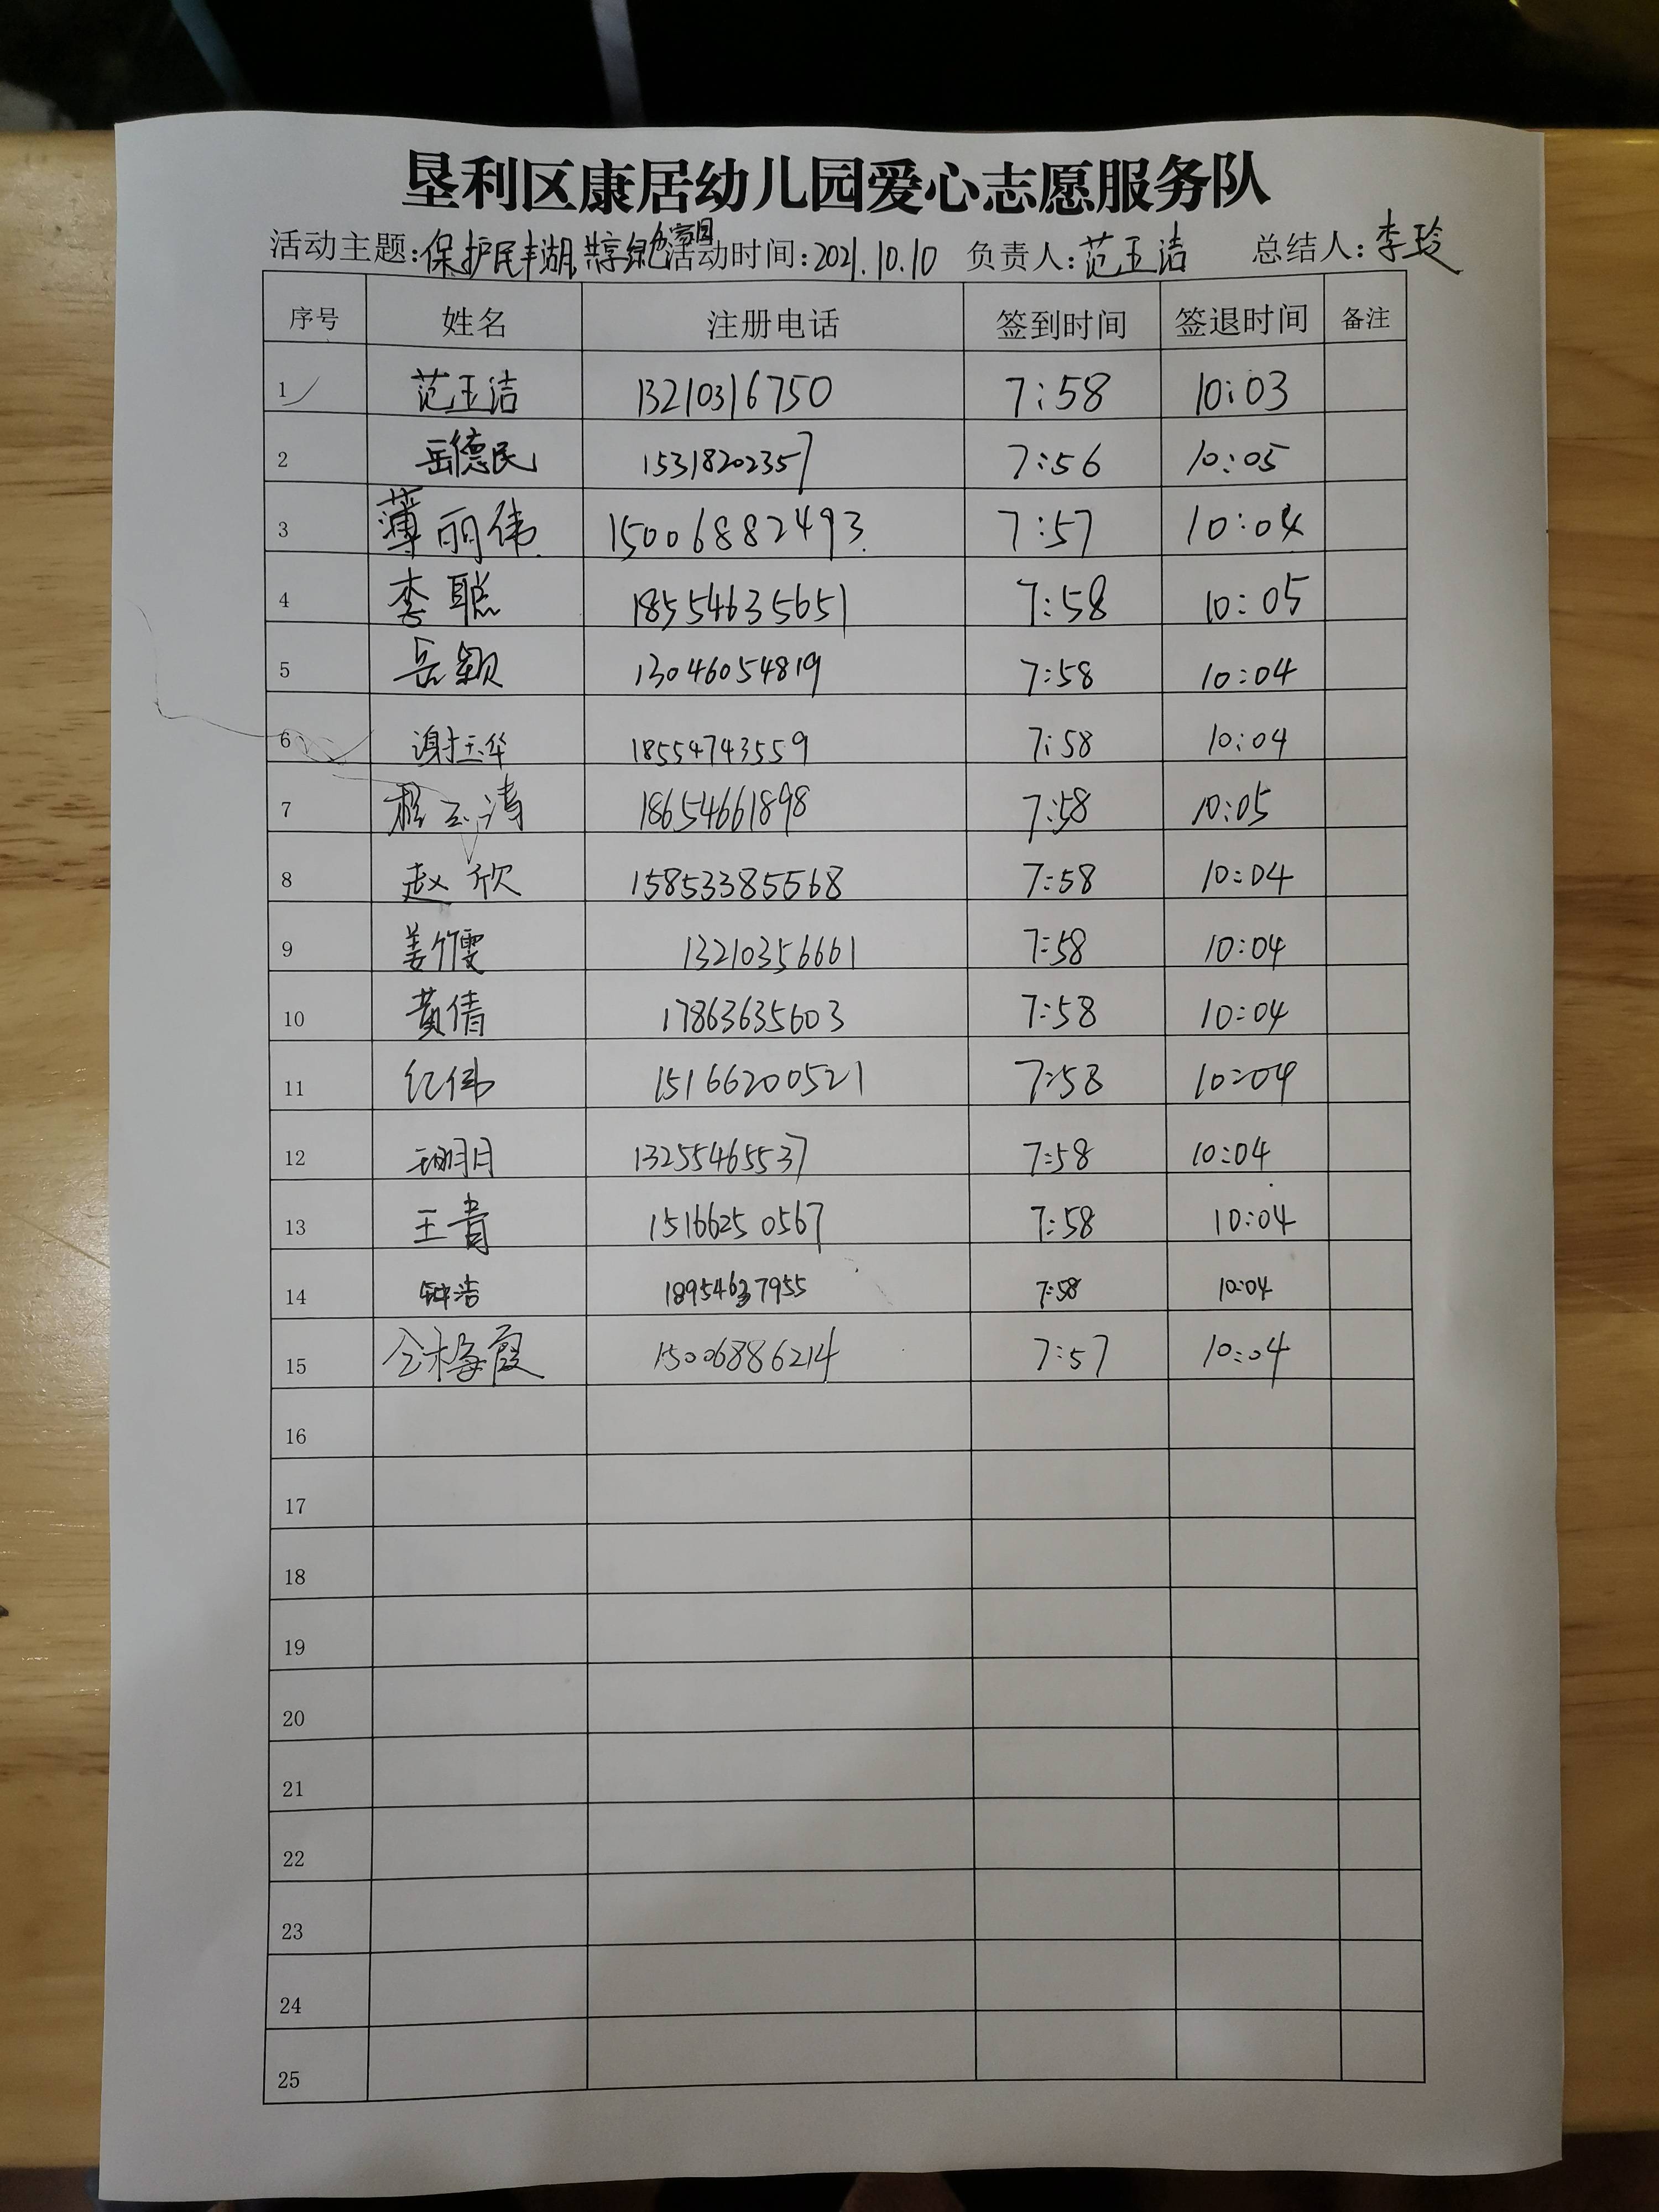 垦利区康居幼儿园爱心志愿服务队
活动主题:保护民丰湖,共享绿色家园 活动时间:2021.10.10 负责人:范玉洁 总结人:李玲
序号 姓名 注册电话 签到时间 签退时间 备注
1 范玉洁 13210316750 7:58 10:03
2 岳德民 15318202357 7:56 10:05
3 薄丽伟 15006882493 7:57 10:04
4 李聪 18554635651 7:58 10:05
5 岳颖 13046054819 7:58 10:04
6 谢玉华 18554743559 7:58 10:04
7 18654661898 7:58 10:05
8 赵欣 15853385568 7:58 10:04
9 姜竹雯 13210356661 7:58 10:04
10 黄倩 17863635603 7:58 10:04
11 纪伟 15166200521 7:58 10:04
12 13255465537 7:58 10:04
13 王青 15166250567 7:58 10:04
14 钟浩 18954637955 7:58 10:04
15 仝梅霞 15006886214 7:57 10:04
16
17
18
19
20
21
22
23
24
25